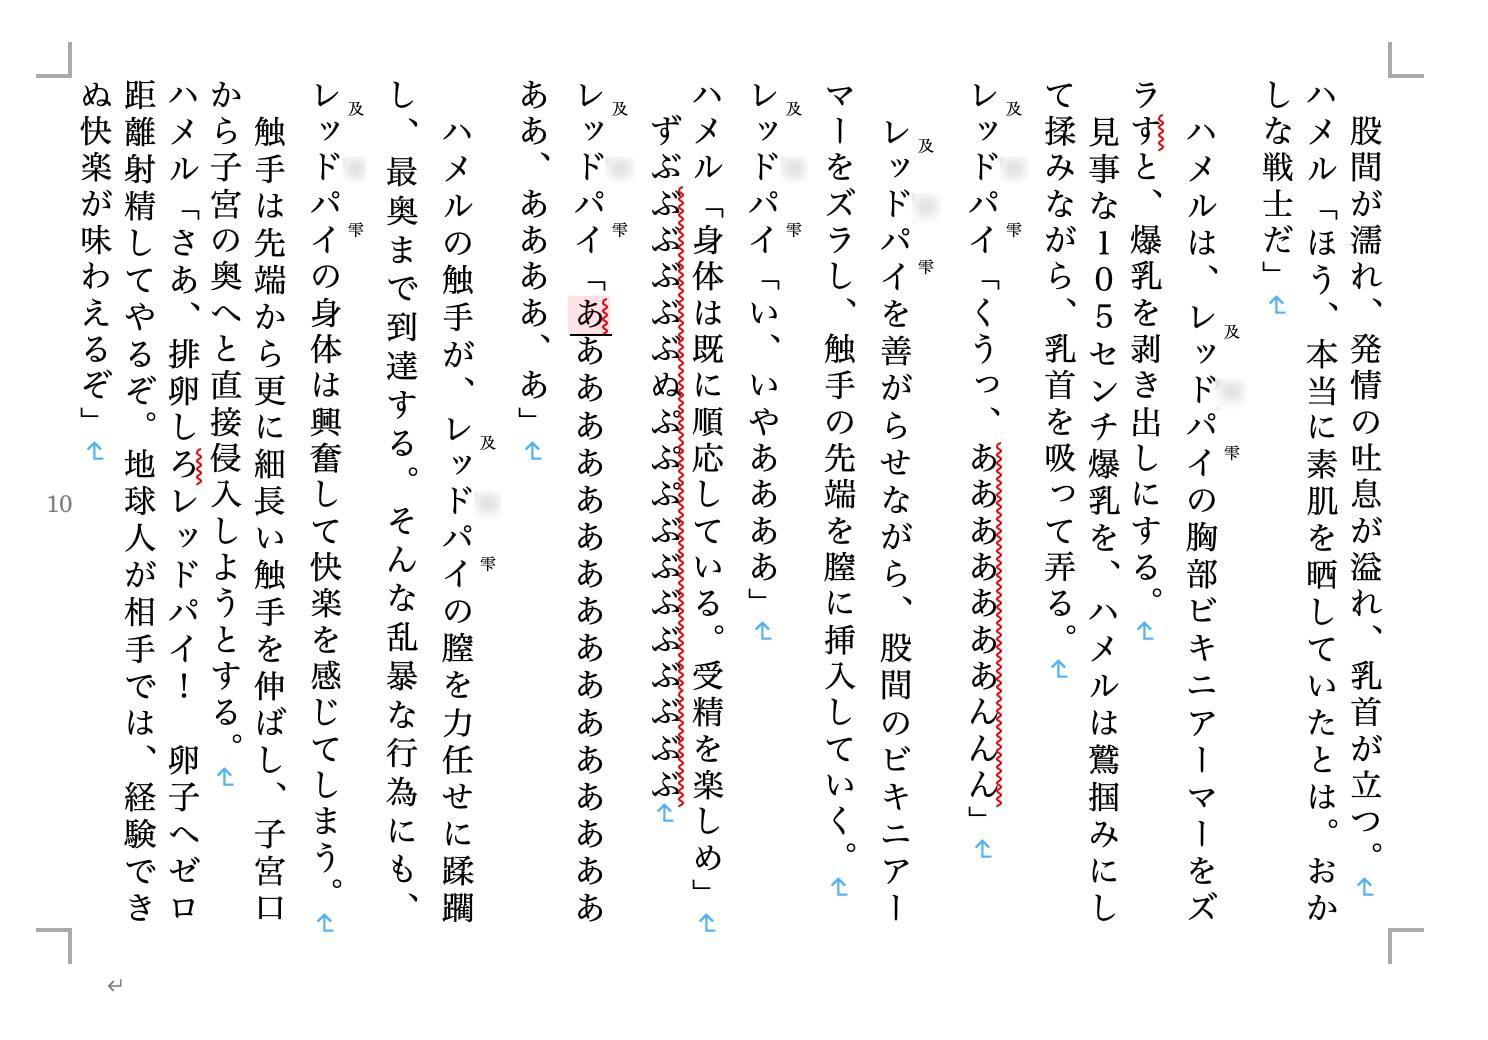 股間が濡れ、発情の吐息が溢れ、乳首が立つ。
ハメル「ほう、本当に素肌を晒していたとは。おか
しな戦士だ」
及 雫
ハメルは、レッドパイの胸部ビキニアーマーをズ
ラすと、爆乳を剥き出しにする。
見事な105センチ爆乳を、ハメルは鷲掴みにし
て揉みながら、乳首を吸って弄る。
及 雫
レッドパイ「くうっ、あああああああんんん」
及 雫
レッドパイを善がらせながら、股間のビキニアー
マーをズラし、触手の先端を膣に挿入していく。
及 雫
レッドパイ「い、いやああああ」
ハメル「身体は既に順応している。受精を楽しめ」
ずぶぶぶぶぶぶぬぷぷぷぶぶぶぶぶぶぶぶ
及 雫
レッドパイ「あああああああああああああああああ
ああ、ああああ、あ」
及 雫
ハメルの触手が、レッドパイの膣を力任せに蹂躙
し、最奥まで到達する。そんな乱暴な行為にも、
及 雫
レッドパイの身体は興奮して快楽を感じてしまう。
触手は先端から更に細長い触手を伸ばし、子宮口
から子宮の奥へと直接侵入しようとする。
ハメル「さあ、排卵しろレッドパイ！　卵子へゼロ
距離射精してやるぞ。地球人が相手では、経験でき
ぬ快楽が味わえるぞ」
10